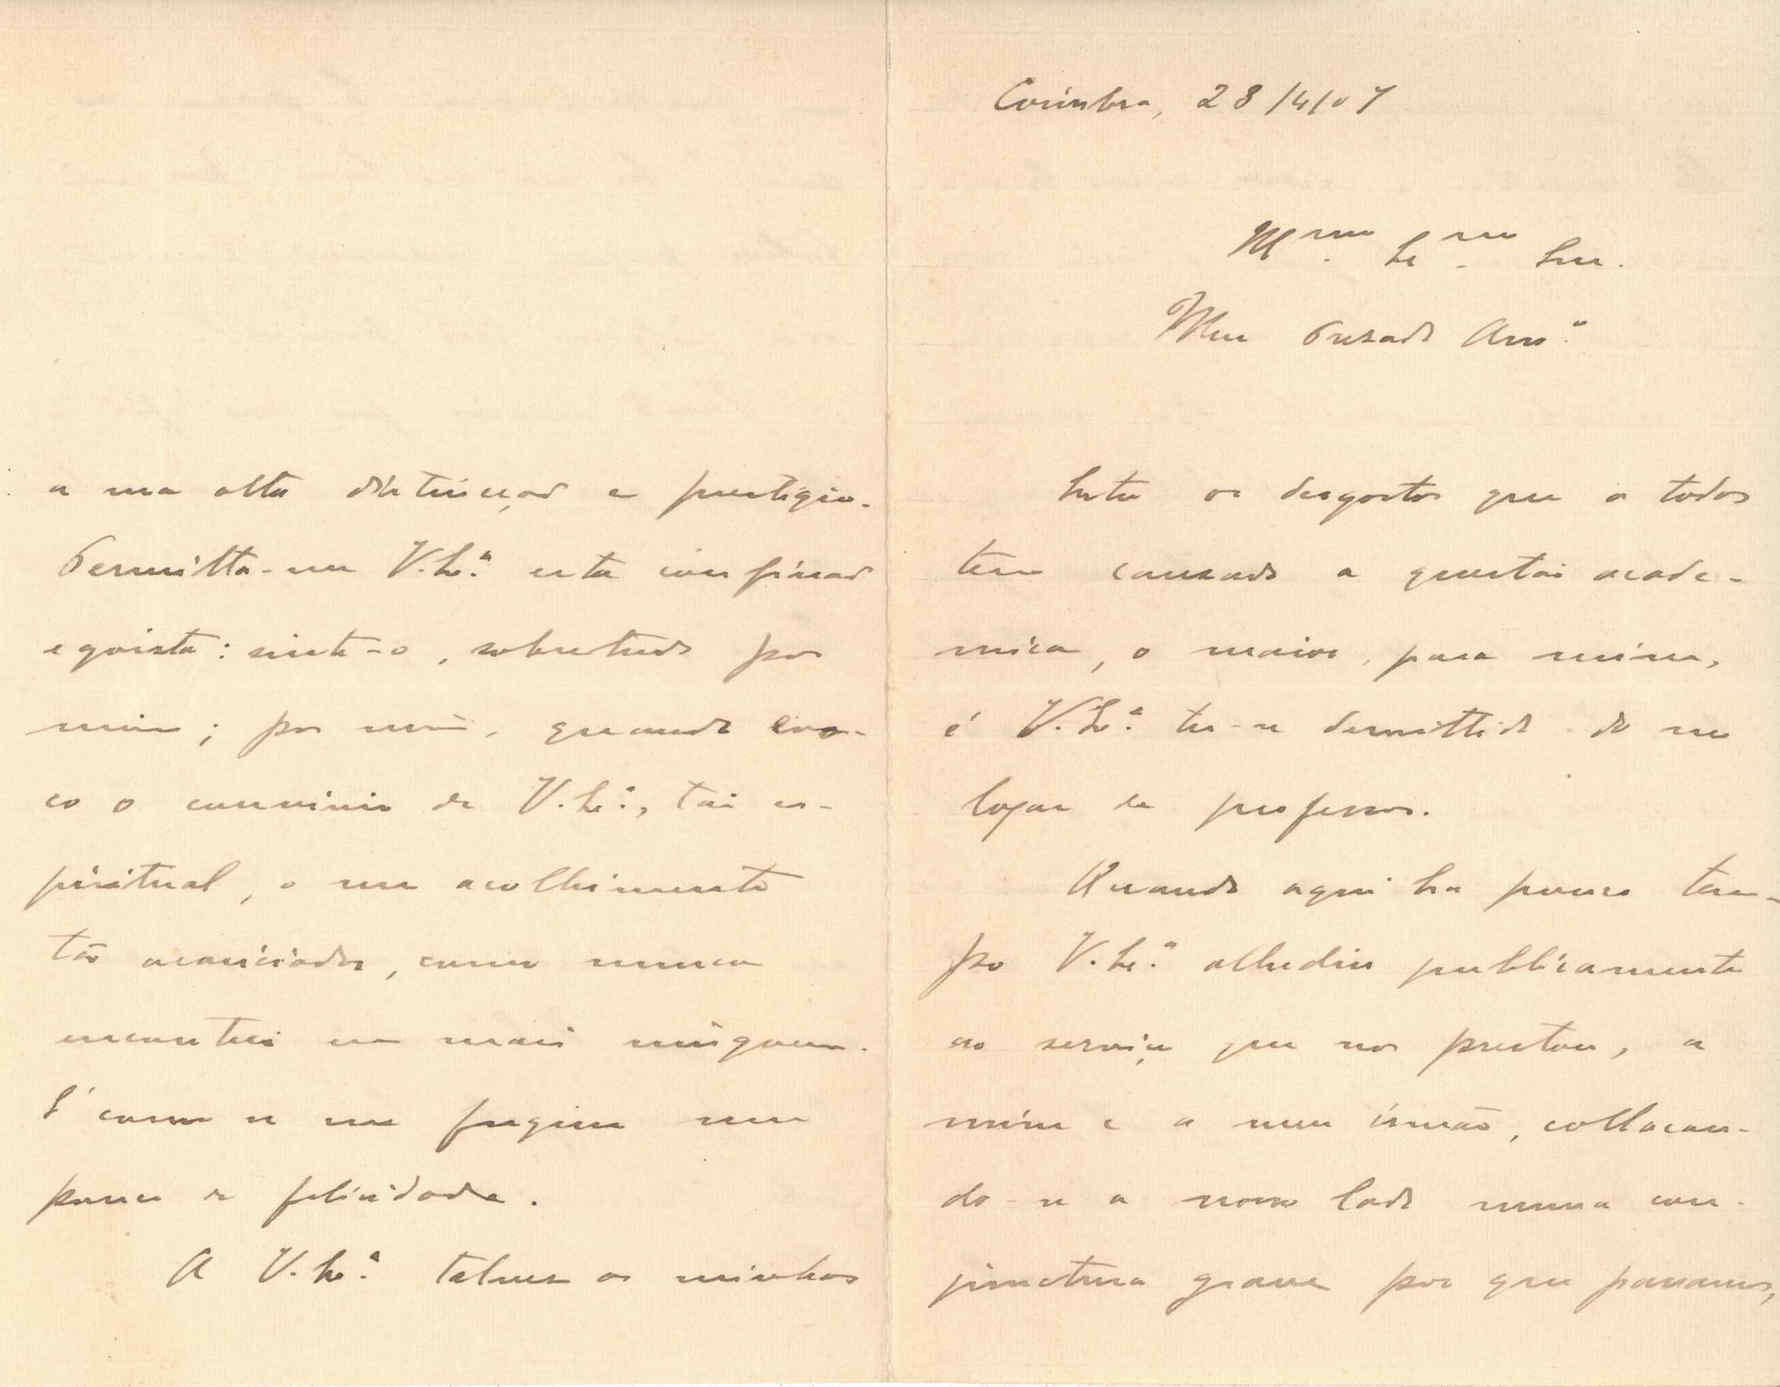 Coimbra, 28/4/07
M.mo Ex.mo Snr.
Meu Presado Am.o
Entre os desgostos que a todos
tem causado a questão acade-
mica, o maior, para mim,
é V. Ex.a ter-se demittido do seu
logar de professor.
Quando aqui ha pouco tem-
po V. Ex.a alludiu publicamente
ao serviço que nos prestou, a
mim e a meu irmão, collocan-
do-se a nosso lado numa con-
junctura grave por que passamos,
a sua alta distincção e prestigio.
Permitta-me V. Ex.a esta confissão
egoista: sinto-o, sobretudo por
mim; por mim, quando evo-
co o convivio de V. Ex.a, tão es-
piritual, o seu acolhimento
tão acariciador, como nunca
encontrei em mais ninguem.
É como se me fugisse um
pouco de felicidade.
A V. Ex.a talvez os minhos